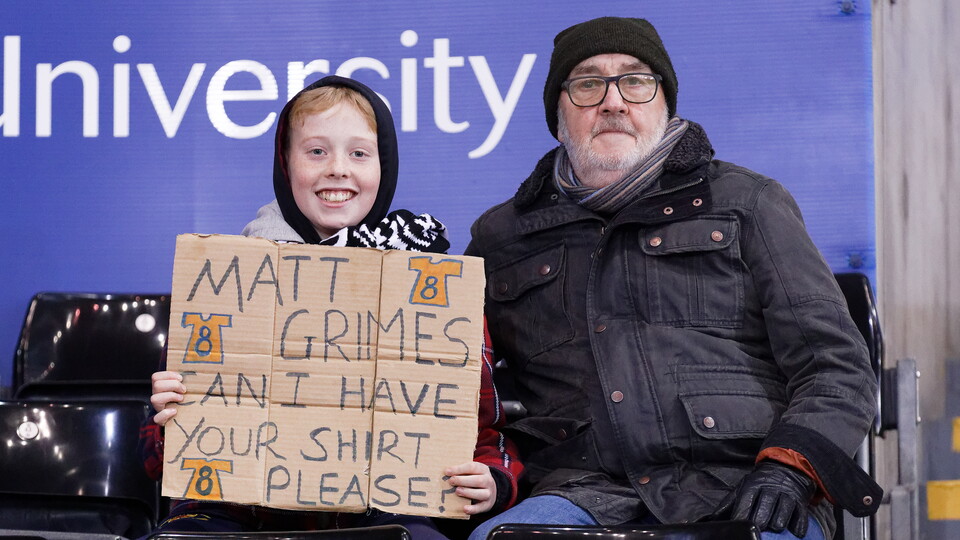 University
MATT 8
8 GRIMES
CAN I HAVE
YOUR SHIRT
8 PLEASE?